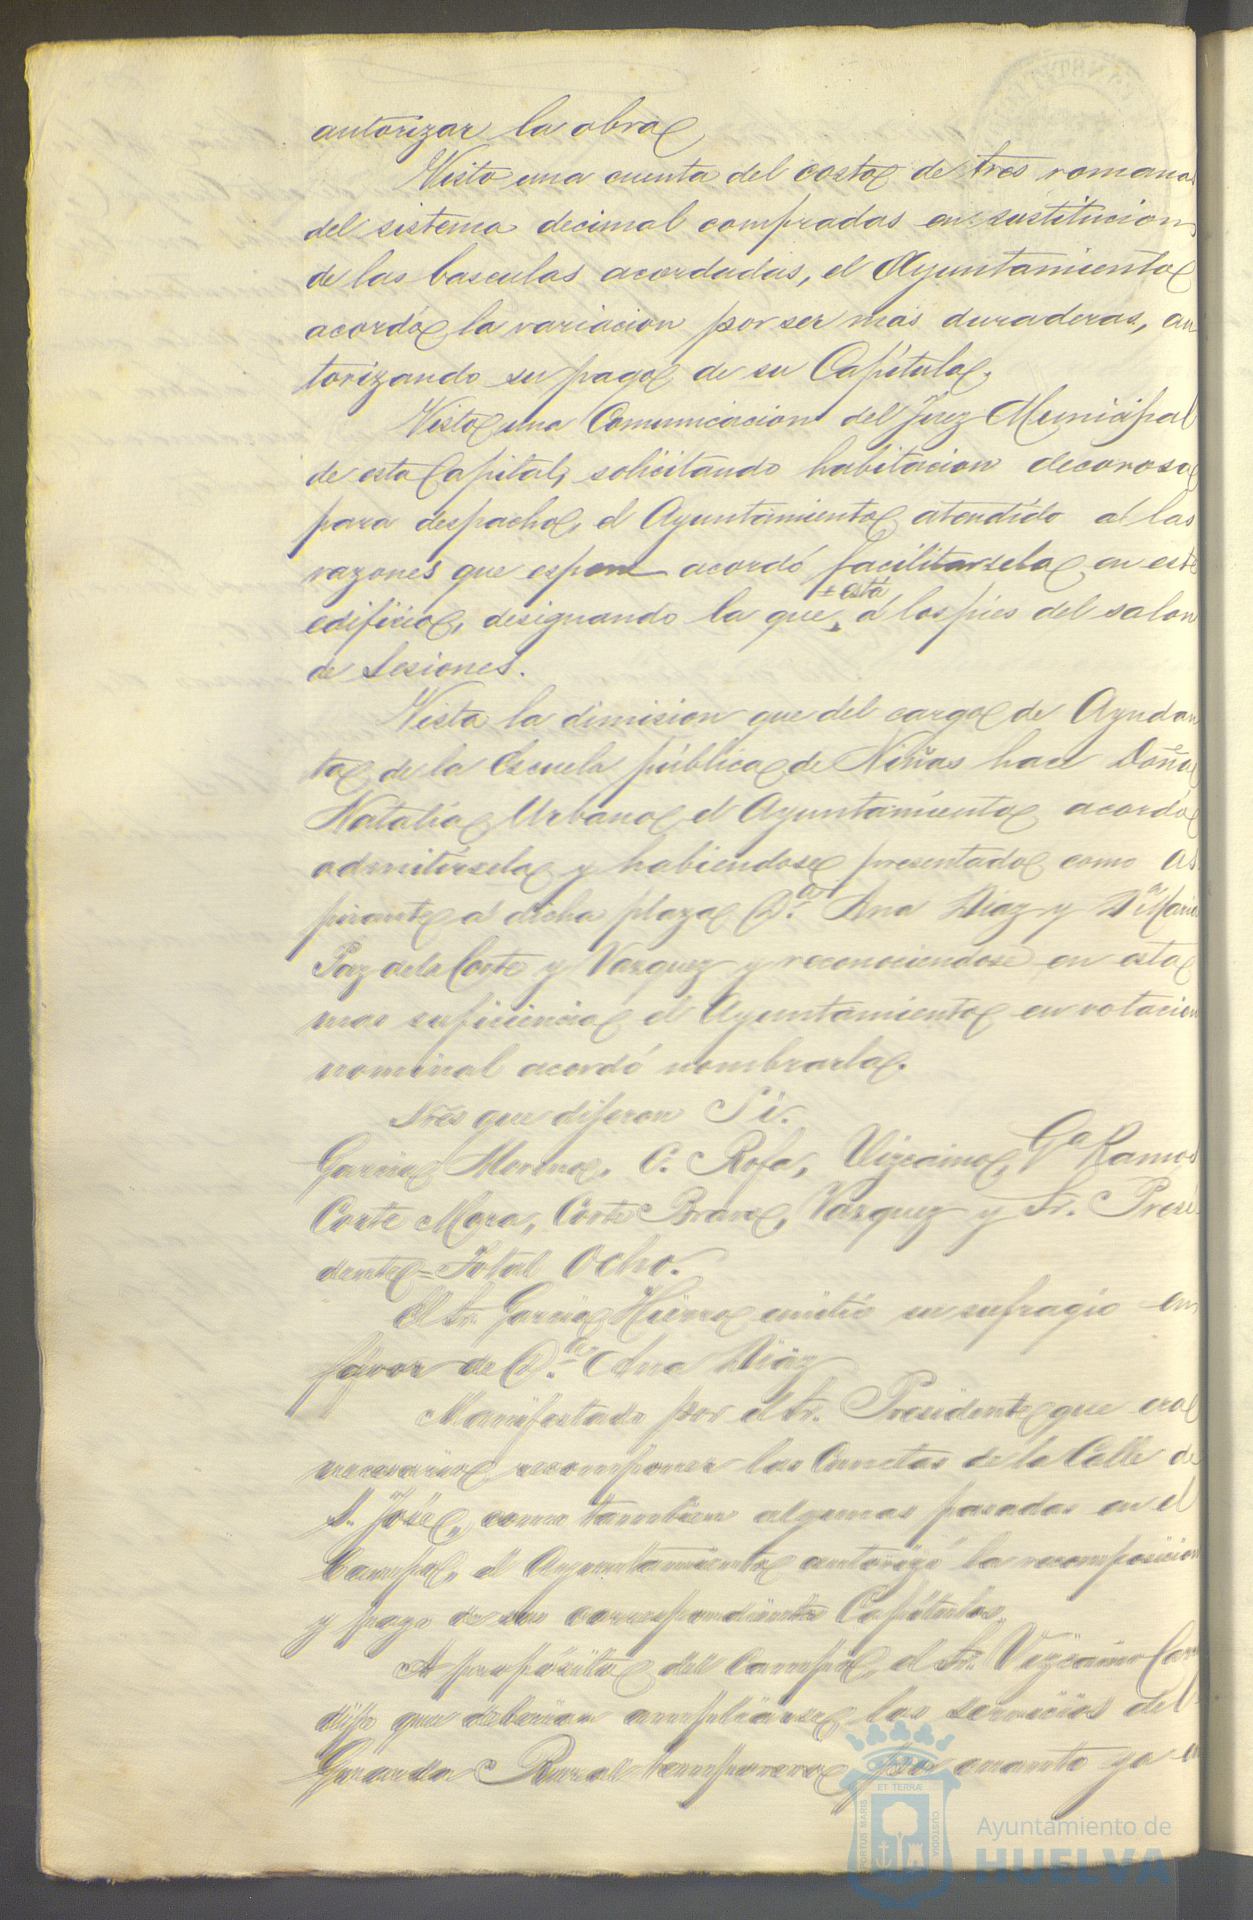 autorizar la obra
Visto una cuenta del costo de tres romanas
del sistema decimal compradas en sustitucion
de las basculas acordadas, el Ayuntamiento
acordó la variacion por ser mas duraderas, au
torizando su pago de su Capítulo.
Visto una Comunicacion del Juez Municipal
de esta Capital, solicitando habitacion decorosa
para despacho, el Ayuntamiento atendido a las
razones que espone acordó facilitarsela en este
edificio, designando la que está a los pies del salon
de Sesiones.
Vista la dimision que del cargo de Ayudan
te de la Escuela pública de Niñas hace Doña
Natalia Urbano el Ayuntamiento acordó
admitirsela y habiendose presentado como as
pirante a dicha plaza D.ª Ana Diaz y D.ª Maria
Paz de la Corte y Vazquez y reconociendose en esta
mas suficiencia el Ayuntamiento en votacion
nominal acordó nombrarla.
Sres que dijeron Si.
Garcia Moreno, C. Rofa, Vizcaino, Gª Ramos
Corte Mora, Corte Bravo, Vazquez y Sr. Presi
dente = Total Ocho.
El Sr. Garcia Hierro emitió su sufragio en
favor de D.ª Ana Diaz
Manifestado por el Sr. Presidente que era
necesario recomponer las Cunetas de la Calle de
S. José, como tambien algunas pasadas en el
Campo, el Ayuntamiento autorizó la recomposicion
y pago de sus correspondientes Capítulos.
A propósito del Campo, el Sr. Vizcaino
dijo que deberian ampliarse los servicios del
Guarda Rural temporero por cuanto ya
ET TERRÆ
PORTUS MARIS
CUSTODIA
Ayuntamiento de
HUELVA